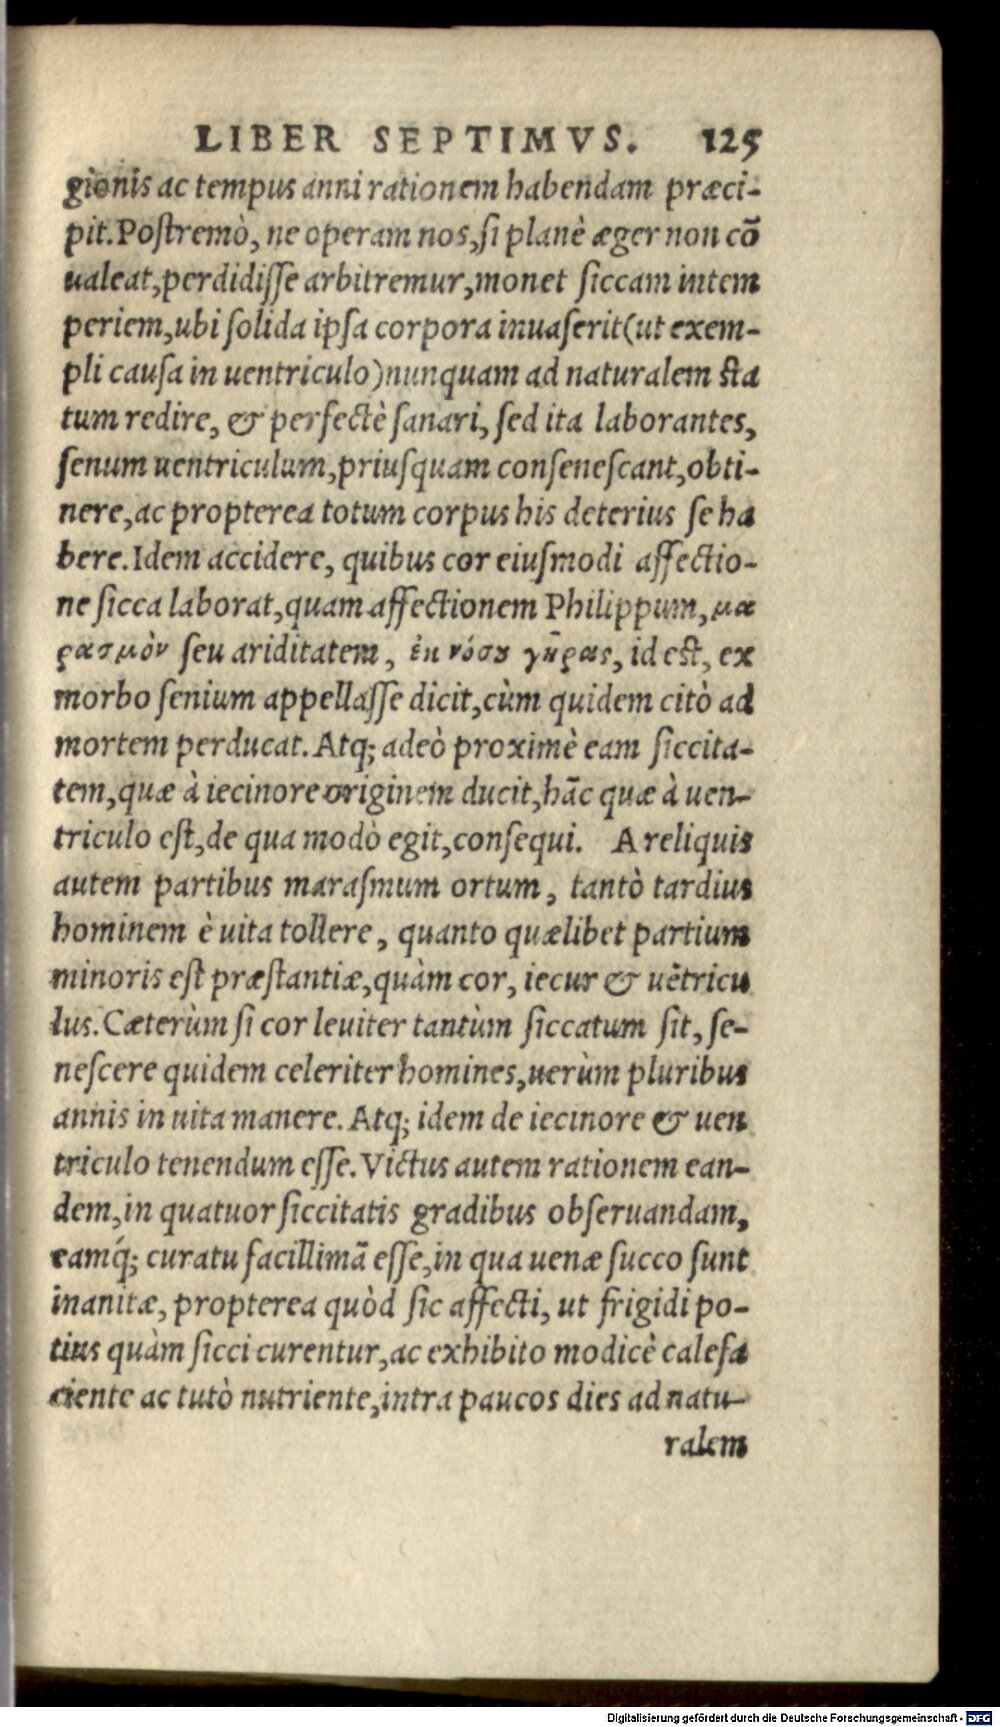 LIBER SEPTIMVS. 125
gionis ac tempus anni rationem habendam præci-
pit. Postremò, ne operam nos, si planè æger non cō
ualeat, perdidisse arbitremur, monet siccam intem
periem, ubi solida ipsa corpora inuaserit (ut exem-
pli causa in uentriculo) nunquam ad naturalem sta
tum redire, & perfectè sanari, sed ita laborantes,
senum uentriculum, priusquam consenescant, obti-
nere, ac propterea totum corpus his deterius se ha
bere. Idem accidere, quibus cor eiusmodi affectio-
ne sicca laborat, quam affectionem Philippum, μα
ρασμὸν seu ariditatem, ἐκ νόσου γῆρας, id est, ex
morbo senium appellasse dicit, cùm quidem citò ad
mortem perducat. Atq; adeò proximè eam siccita-
tem, quæ à iecinore originem ducit, hāc quæ à uen-
triculo est, de qua modò egit, consequi. A reliquis
autem partibus marasmum ortum, tantò tardius
hominem è uita tollere, quanto quælibet partium
minoris est præstantiæ, quàm cor, iecur & uētricu
lus. Cæterùm si cor leuiter tantùm siccatum sit, se-
nescere quidem celeriter homines, uerùm pluribus
annis in uita manere. Atq; idem de iecinore & uen
triculo tenendum esse. Victus autem rationem ean-
dem, in quatuor siccitatis gradibus obseruandam,
eamq́; curatu facillimā esse, in qua uenæ succo sunt
inanitæ, propterea quòd sic affecti, ut frigidi po-
tius quàm sicci curentur, ac exhibito modicè calefa
ciente ac tutò nutriente, intra paucos dies ad natu-
ralem
Digitalisierung gefördert durch die Deutsche Forschungsgemeinschaft - DFG